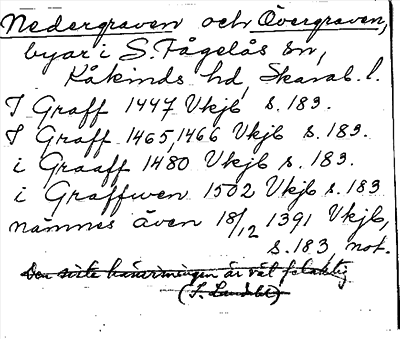 Nedergraven och Övergraven,
byar i S. Fågelås sn,
Kåkinds hd, Skarab. l.
I Graff 1447 Vkjb s. 183.
I Graff 1465, 1466 Vkjb s. 183.
i Graaff 1480 Vkjb s. 183.
i Graffwen 1502 Vkjb s. 183
nämnes även 18/12 1391 Vkjb,
s. 183 not.
Den sista hänvisningen är väl felaktig